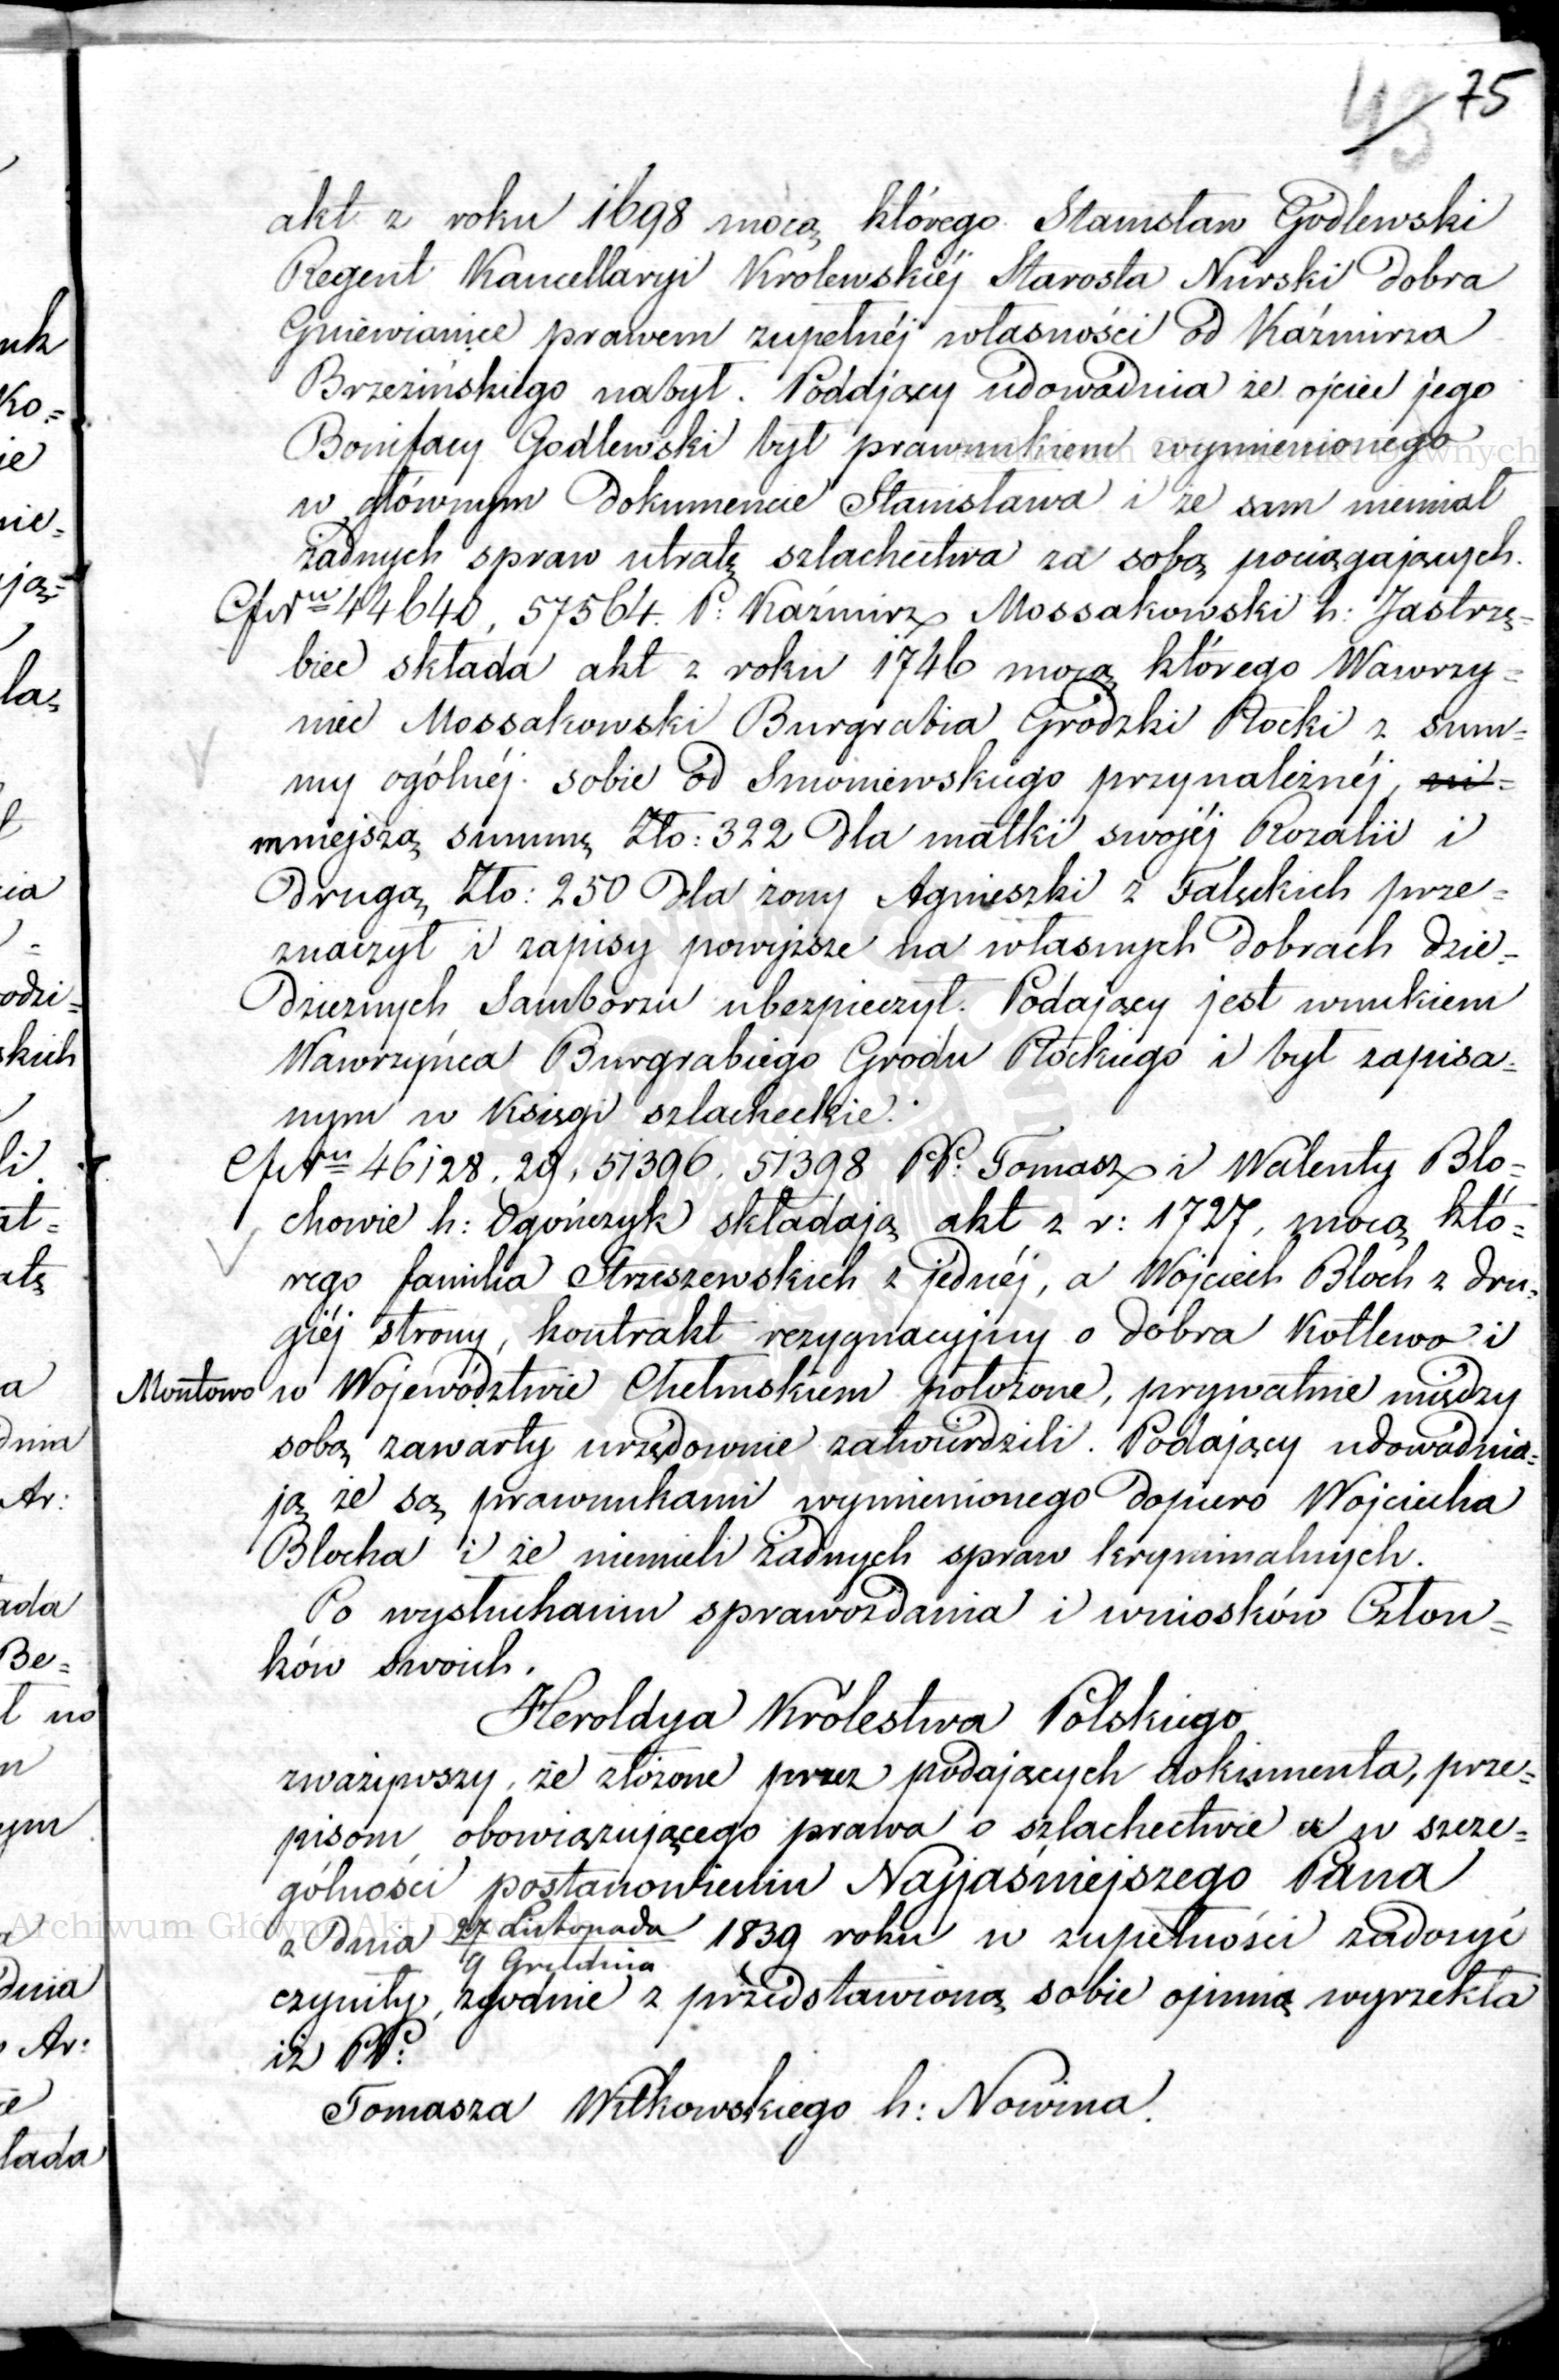 75
43
akt z roku 1698 mocą którego Stanisław Godlewski
Regent Kancellaryi Krolewskiéj Starosta Nurski dobra
Gniewianice prawem zupełnéj własności od Kaźmirza
Brzezińskiego nabył. Podający udowadnia że ojciec jego
Bonifacy Godlewski był prawnukiem wymienionego
w głównym dokumencie Stanisława i że sam niemiał
żadnych spraw utratę szlachectwa za sobą pociągających.
44640, 57564. P: Kaźmirz Mossakowski h: Jastrzę=
biec składa akt z roku 1746 mocą którego Wawrzy=
niec Mossakowski Burgrabia Grodzki Płocki z sum=
my ogólnéj sobie od Smoniewskiego przynależnéj, ni=
mniejszą summę Zło: 322 dla matki swojéj Rozalii i
drugą Zło: 250 dla żony Agnieszki z Falęckich prze=
znaczył i zapisy powyższe na własnych dobrach dzie=
dzicznych Samborzu ubezpieczył. Podający jest wnukiem
Wawrzyńca Burgrabiego Grodu Płockiego i był zapisa=
nym w Księgi szlacheckie.
46128, 29, 51396, 51398 PP: Tomasz i Walenty Blo=
chowie h: Ogończyk składają akt z r: 1727, mocą któ=
rego familia Strzeszewskich z jednéj, a Wojciech Bloch z dru=
giéj strony, kontrakt rezygnacyjny o dobra Kotlewo i
Montowo w Województwie Chełmskiem położone, prywatnie między
sobą zawarty urzędownie zatwierdzili. Podający udowadnia=
ją że są prawnukami wymienionego dopiero Wojciecha
Blocha i że niemieli żadnych spraw kryminalnych.
Po wysłuchaniu sprawozdania i wniosków Człon=
ków swoich.
Heroldya Królestwa Polskiego
zważywszy, że złożone przez podających dokumenta, prze=
pisom obowiązującego prawa o szlachectwie a w szcze=
gólności postanowieniu Najjaśniejszego Pana
z dnia 27 Listopada 1839 roku w zupełności zadosyć
9 Grudnia
czynity, zgodnie z przedstawioną sobie opinią wyrzekła
iż PP:
Tomasza Witkowskiego h: Nowina.